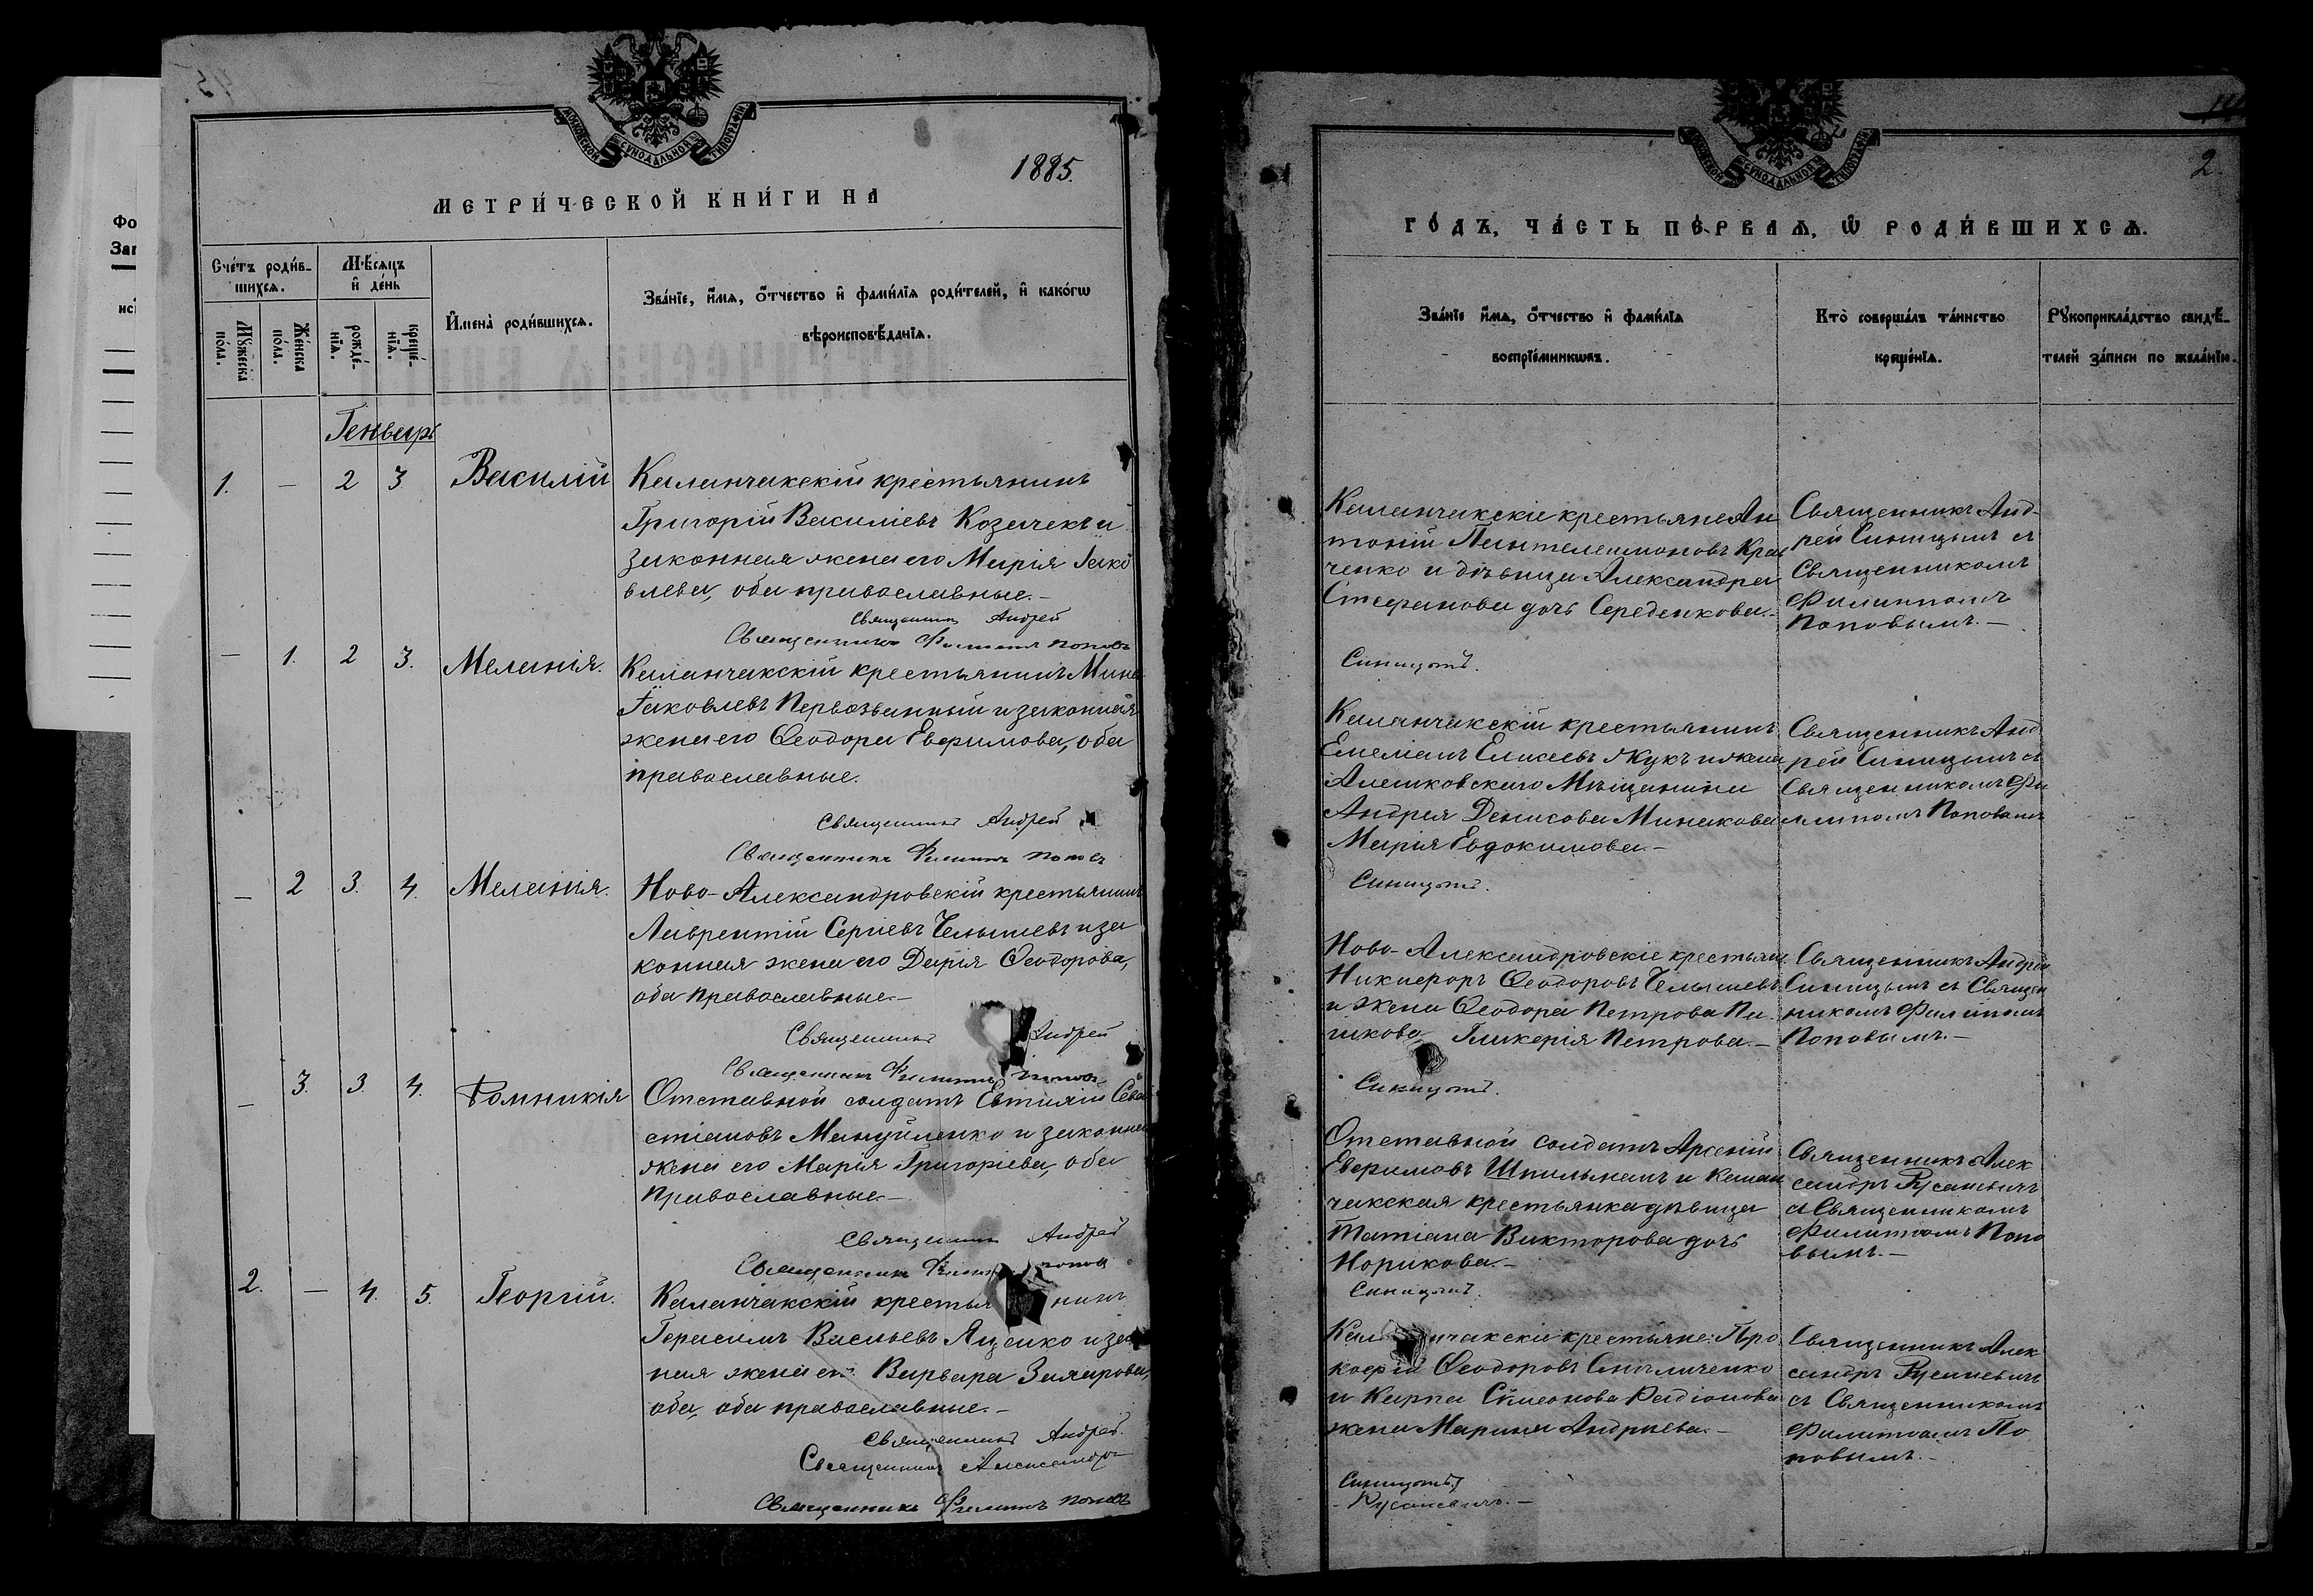 МОСКОВСКОЙ СУНОДАЛЬНОЙ ТИПОГРАФІИ
1885.
МЕТРИ́ЧЕСКОЙ КНИ́ГИ НА
Сче́тъ роди́в-
шихсѧ.
Мѣ́сѧцъ
и҆ де́нь
И҆мена̀ роди́вшихсѧ.
Зва́нїе, и҆́мѧ, ѻ҆́тчество и҆ фами́лїѧ роди́телей, и҆ како́гѡ
вѣроисповѣ́данїѧ.
Мꙋ́жеска
по́ла.
Же́нска
по́ла.
рожде́-
нїѧ.
креще́-
нїѧ.
Генварь
1. — 2 3 Василій
Каланчакскій крестьянинъ
Григорій Василіевъ Козачекъ и
законная жена его Марія Іако
влева, оба православные.—
Священникъ Андрей
Священникъ Филиппъ Поповъ
— 1. 2 3. Меланія.
Каланчакскій крестьянинъ Мина
Іаковлевъ Первозванный и законная
жена его Ѳеодора Евфимова, оба
православные.
Священникъ Андрей
Священникъ Филиппъ Поповъ
— 2 3. 4. Меланія.
Ново-Александровскій крестьянинъ
Лаврентій Сергіевъ Челышевъ и за
конная жена его Дарія Ѳеодорова,
оба православные.—
Священникъ Андрей
Священникъ Филиппъ Поповъ
— 3. 3. 4. Домникія
Отставной солдатъ Евтихій Сева
стіановъ Мануйленко и законная
жена его Марія Григоріева, оба
Православные.—
Священникъ Андрей
Священникъ Поповъ
2. — 4. 5. Георгій.
Каланчакскій крестья нинъ
Герасимъ Васильевъ Яценко и зако
ная жена его Варвара
оба, оба православные.—
Священникъ Андрей
Священникъ Александръ
Священникъ Филиппъ Поповъ
МОСКОВСКОЙ СУНОДАЛЬНОЙ ТИПОГРАФІИ
2.
ГО́ДЪ, ЧА́СТЬ ПЕ́РВАѦ, Ѡ҆ РОДИ́ВШИХСѦ.
Зва́нїе и҆́мѧ, ѻ҆́тчество и҆ фами́лїѧ
воспрїе́мникѡвъ.
Кто̀ соверша́лъ та́инство
креще́нїѧ.
Рꙋкоприкла́дство свидѣ́-
телей за́писи по жела́нїю.
Каланчакскіе крестьяне Ан
тоній Пантелеимоновъ Крав
ченко и дѣвица Александра
Стефанова дочь Середенкова.—
Синицынъ.
Священникъ Анд-
рей Синицынъ съ
Священникомъ
Филиппомъ
Поповымъ.—
Каланчакскій крестьянинъ
Емеліанъ Елисеевъ Жукъ и жена
Алешковскаго Мѣщанина
Андрея Денисова Минакова
Марія Евдокимова.—
Синицынъ.
Священникъ Анд
рей Синицынъ съ
Священникомъ Фи
липпомъ Поповымъ
Ново-Александровскіе крестьяне
Никифоръ Ѳеодоровъ Челышевъ
и жена Ѳеодора Петрова Пи-
шкова Гликерія Петрова.—
Синицынъ.
Священникъ Андрей
Синицынъ съ Священ
никомъ Филипомъ
Поповымъ.—
Отставной солдатъ Арсеній
Евфимовъ Шпильманъ и Калан
чакская крестьянка дѣвица
Татіана Викторова дочь
Норикова.—
Синицынъ.
Священникъ Алек
сандръ Русаневичъ
съ Священникомъ
Филиппомъ Попо
вымъ.—
Кал нчакскіе крестьяне: Про
кофій Ѳеодоровъ
и Карпа Сѵмеонова Радіонова
жена Марина Андріева.—
Синицынъ.
Русаневичъ.—
Священникъ Алек
сандръ Русаневичъ
съ Священникомъ
Филиппомъ По
повымъ.—